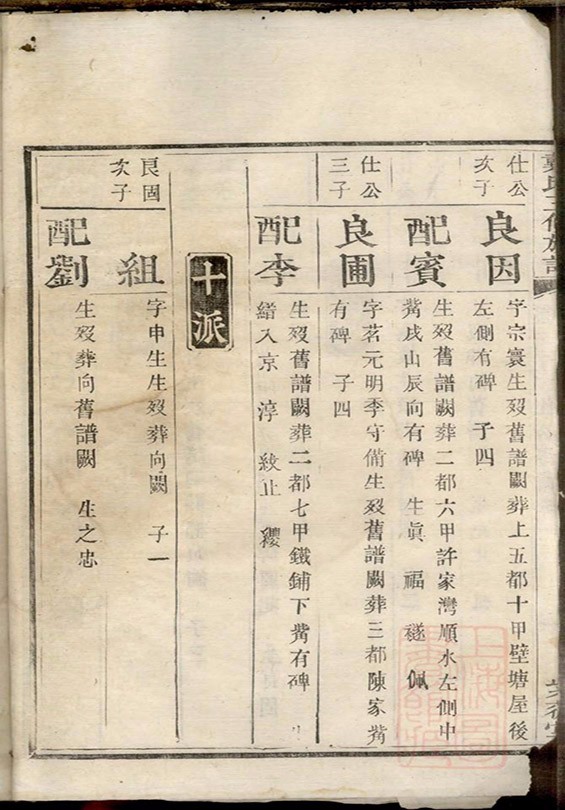 氏三修族譜
仕公
次子
良因
字宗寰生歿舊譜闕葬上五都十甲壁塘屋後
左側有碑 子四
配賓
生歿舊譜闕葬二都六甲許家灣順水左側中
觜戌山辰向有碑 生眞 福 襚 佩
仕公
三子
良圃
字茗元明季守備生歿舊譜闕葬三都陳家觜
有碑 子四
配李
生歿舊譜闕葬二都七甲鐵鋪下觜有碑 生
縉入京 淳 綬止 纓
十派
良固
次子
組
字申生生歿葬向闕 子一
配劉
生歿葬向舊譜闕 生之忠